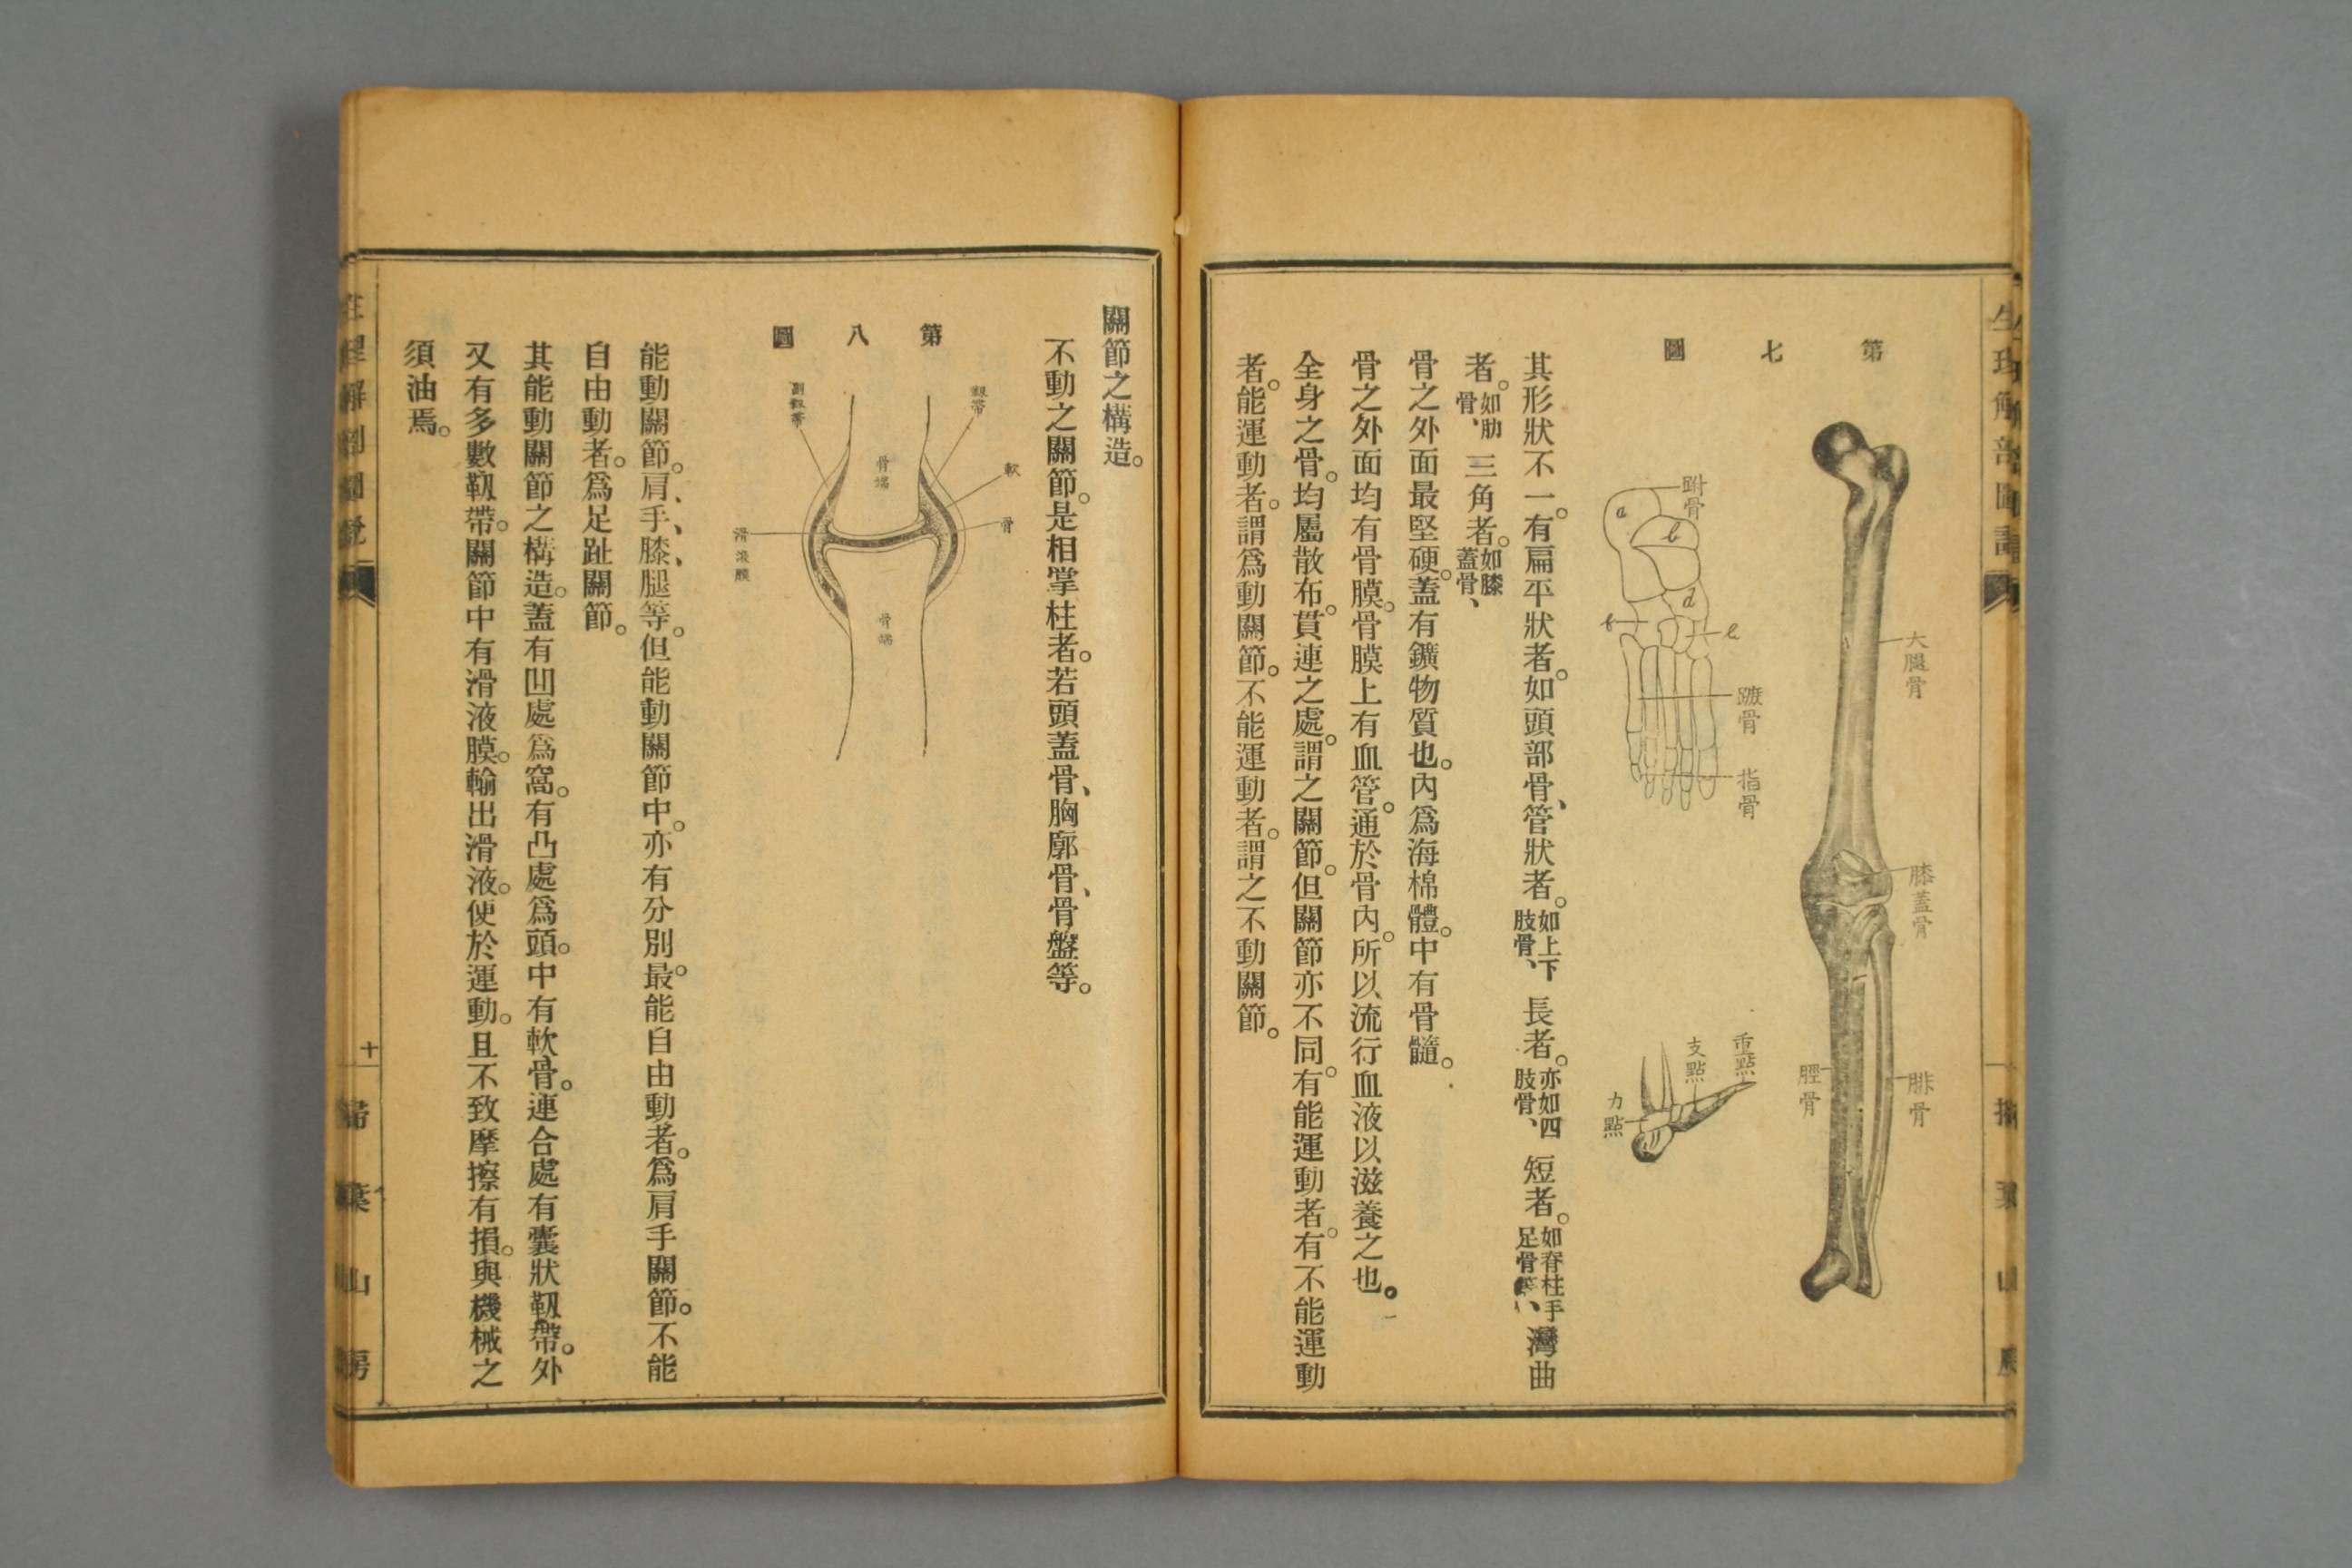 第七圖
大腿骨
膝蓋骨
腓骨
脛骨
跗骨
a
b
d
e
蹠骨
指骨
重點
支點
力點
其形狀不一。有扁平狀者。如頭部骨、管狀者。如上下肢骨、長者。亦如四肢骨、短者。如脊柱手足骨等、灣曲
者。如肋骨、三角者。如膝蓋骨、
骨之外面最堅硬。蓋有鑛物質也。內爲海棉體。中有骨髓。
骨之外面均有骨膜。骨膜上有血管。通於骨內。所以流行血液以滋養之也。
全身之骨。均屬散布。貫連之處。謂之關節。但關節亦不同。有能運動者。有不能運動
者。能運動者。謂爲動關節。不能運動者。謂之不動關節。
關節之構造。
不動之關節。是相掌柱者。若頭蓋骨、胸廓骨、骨盤等。
第八圖
軟骨
骨端
骨端
滑液膜
能動關節。肩、手、膝、腿等。但能動關節中。亦有分別。最能自由動者。爲肩手關節。不能
自由動者。爲足趾關節。
其能動關節之構造。蓋有凹處爲窩。有凸處爲頭。中有軟骨。連合處有囊狀靱帶。外
又有多數靱帶。關節中有滑液膜。輸出滑液。便於運動。且不致摩擦有損。與機械之
須油焉。
生理解剖圖說
十
掃葉山房